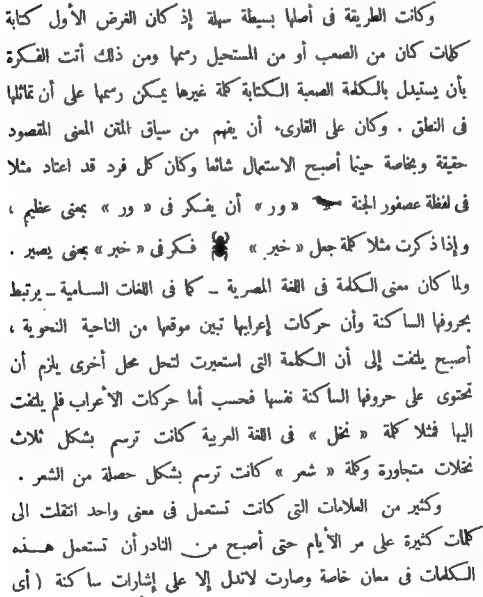 وكانت الطريقة فى أصلها بسيطة سهلة إذ كان الغرض الأول كتابة
كلمات كان من الصعب أو من المستحيل رسمها ومن ذلك أتت الفكرة
بأن يستبدل بالكلمة الصعبة الكتابة كلمة غيرها يمكن رسمها على أن تماثلها
فى النطق . وكان على القارىء أن يفهم من سياق المتن المعنى المقصود
حقيقة وبخاصة حينما أصبح الاستعمال شائعا وكان كل فرد قد اعتاد مثلا
فى لفظة عصفور الجنة « ور » أن يفكر فى « ور » بمعنى عظيم ،
وإذا ذكرت مثلا كلمة جعل « خبر » فكر فى « خبر » بمعنى يصير .
ولما كان معنى الكلمة فى اللغة المصرية ـ كما فى اللغات السامية ـ يرتبط
بحروفها الساكنة وأن حركات إعرابها تبين موقعها من الناحية النحوية ،
أصبح يلتفت إلى أن الكلمة التى استعيرت لتحل محل أخرى يلزم أن
تحتوى على حروفها الساكنة نفسها فحسب أما حركات الأعراب فلم يلتفت
اليها فمثلا كلمة « نخل » فى اللغة العربية كانت ترسم بشكل ثلاث
نخلات متجاورة وكلمة « شعر » كانت ترسم بشكل خصلة من الشعر .
وكثير من العلامات التى كانت تستعمل فى معنى واحد انتقلت الى
كلمات كثيرة على مر الأيام حتى أصبح من النادر أن تستعمل هـذه
الكلمات فى معان خاصة وصارت لاتدل إلا على إشارات ساكنة ( أى